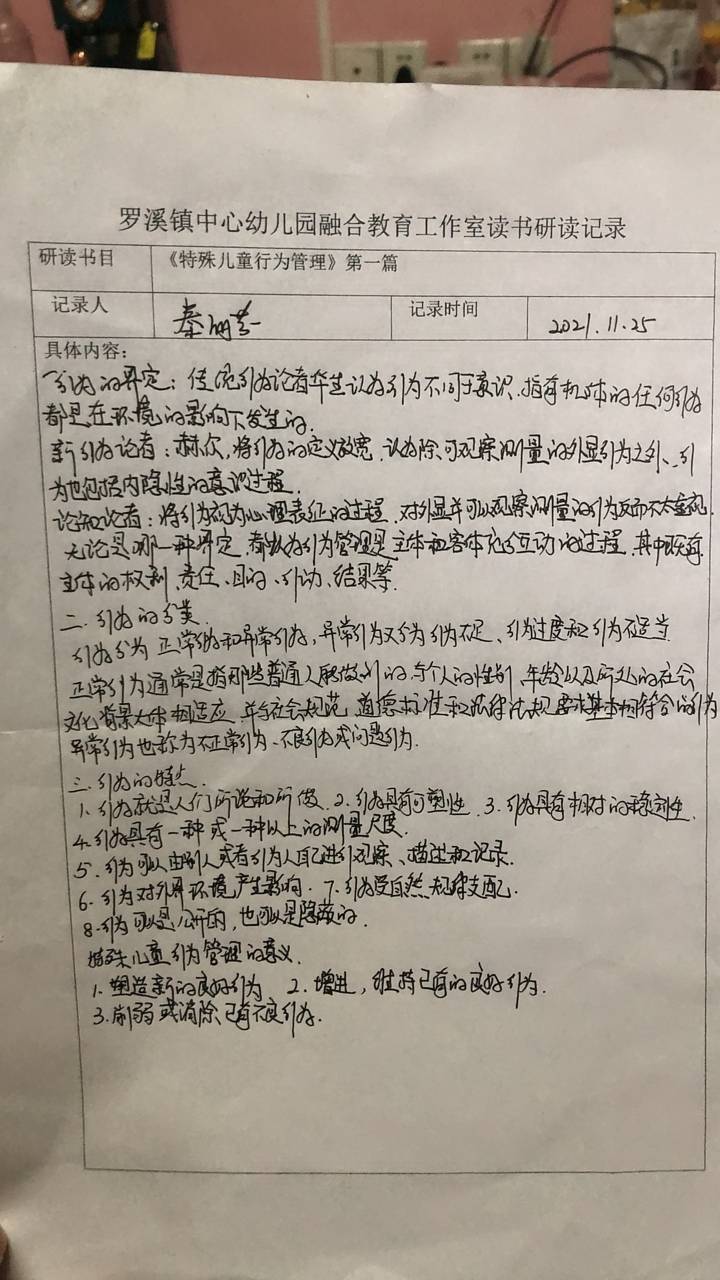 罗溪镇中心幼儿园融合教育工作室读书研读记录
研读书目 《特殊儿童行为管理》第一篇
记录人 秦 记录时间 2021.11.25
具体内容：
一行为的界定：传统行为论者华生认为行为不同于意识，指有机体的任何行为
都是在环境的影响下发生的.
新行为论者：赫尔，将行为的定义放宽，认为除可观察测量的外显行为之外、行
为也包括内隐性的意识过程.
论知论者：将行为视为心理表征的过程，对外显并可以观察测量的行为反而不太重视.
无论是哪一种界定，都认为行为管理是主体和客体充分互动的过程，其中既有
主体的权利、责任、目的、行动、结果等.
二.行为的分类.
行为分为正常行为和异常行为，异常行为又分为行为不足、行为过度和行为不适当
正常行为通常是指那些普通人能做到的，与个人的性别、年龄以及所处的社会
文化背景大体相适应，并与社会规范、道德标准和法律法规要求基本相符合的行为
异常行为也称为不正常行为、不良行为或问题行为.
三.行为的特点.
1.行为就是人们所说和所做.2.行为具有可塑性.3.行为具有相对的稳定性.
4.行为具有一种或一种以上的测量尺度.
5.行为可以由别人或者行为人自己进行观察、描述和记录.
6.行为对外界环境产生影响.7.行为受自然规律支配.
8.行为可以是公开的，也可以是隐蔽的.
特殊儿童行为管理的意义.
1.塑造新的良好行为 2.增进，维持已有的良好行为.
3.削弱或消除已有不良行为.